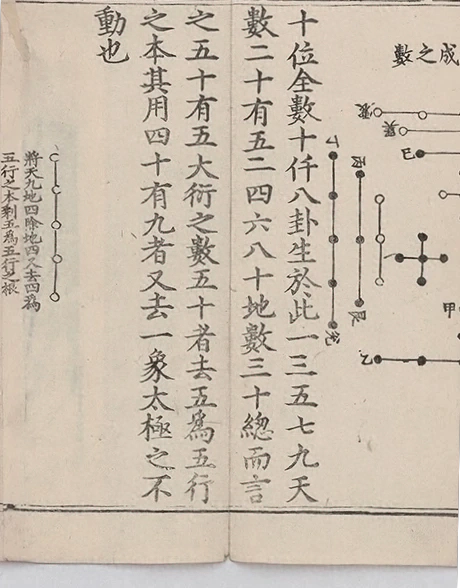 成之數
震
巽
己
甲
乙
丙
艮
丁
兌
十位全數十仟八卦生於此一三五七九天
數二十有五二四六八十地數三十總而言
之五十有五大衍之數五十者去五為五行
之本其用四十有九者又去一象太極之不
動也
將天九地四除地四又去四為
五行之本剩五為五行之根